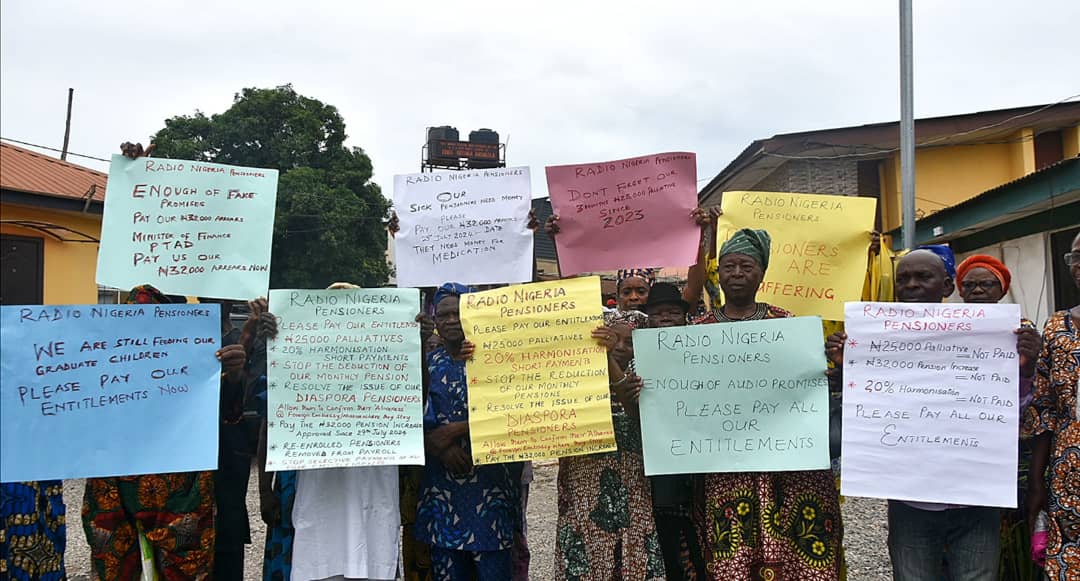 RADIO NIGERIA PENSIONERS
ENOUGH OF FAKE
PROMISES
PAY OUR ₦32,000 ARREARS
MINISTER OF FINANCE
PTAD
PAY US OUR
₦32000 ARREARS NOW
RADIO NIGERIA PENSIONERS
OUR
SICK PENSIONERS NEED MONEY
PLEASE
PAY OUR ₦32,000 ARREARS
THEY NEED MONEY FOR
MEDICATION
RADIO NIGERIA PENSIONERS
DON'T FORGET OUR
3 MONTHS ₦25,000 PALLIATIVE
SINCE
2023
RADIO NIGERIA
PENSIONERS
PENSIONERS
ARE
SUFFERING
RADIO NIGERIA PENSIONERS
WE ARE STILL FEEDING OUR
GRADUATE CHILDREN
PLEASE PAY OUR
ENTITLEMENTS NOW
RADIO NIGERIA PENSIONERS
PLEASE PAY OUR ENTITLEMENTS
₦25000 PALLIATIVES
* 20% HARMONISATION
SHORT PAYMENTS
* STOP THE DEDUCTION OF
OUR MONTHLY PENSION
* RESOLVE THE ISSUE OF OUR
DIASPORA PENSIONERS
ALLOW THEM TO CONFIRM THEIR "ALIVENESS"
* PAY THE ₦32,000 PENSION INCREASE
APPROVED SINCE 29TH JULY 2024
* RE-ENROLLED PENSIONERS
REMOVED FROM PAYROLL
* STOP SELECTIVE PAYMENTS OF
RADIO NIGERIA PENSIONERS
PLEASE PAY OUR ENTITLEMENTS
₦25,000 PALLIATIVES
* 20% HARMONISATION
SHORT PAYMENTS
* STOP THE REDUCTION
OF OUR MONTHLY
PENSIONS
* RESOLVE THE ISSUE OF OUR
DIASPORA
PENSIONERS
* PAY THE ₦32,000 PENSION INCREASE
RADIO NIGERIA
PENSIONERS
ENOUGH OF AUDIO PROMISES
PLEASE PAY ALL
OUR
ENTITLEMENTS
RADIO NIGERIA
PENSIONERS
* ₦25,000 PALLIATIVE = NOT PAID
* ₦32000 PENSION INCREASE
= NOT PAID
* 20% HARMONISATION = NOT PAID
PLEASE PAY ALL OUR
ENTITLEMENTS